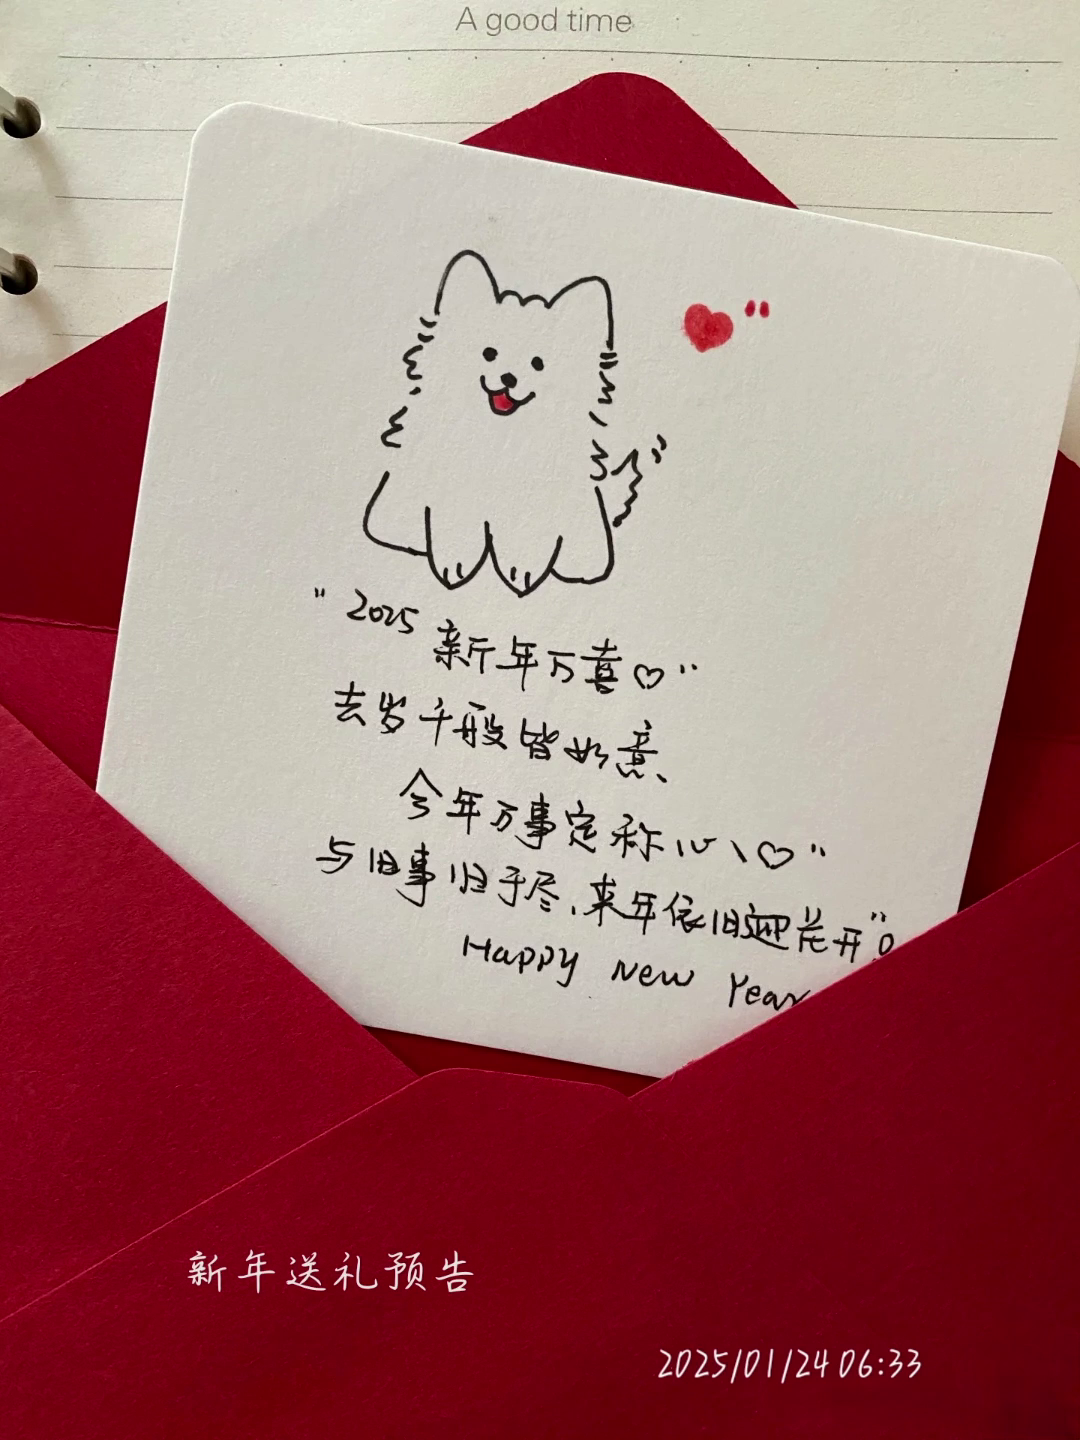 A good time
"2025 新年万喜♡"
去岁千般皆如意、
今年万事定称心、♡"
与旧事归于尽，来年依旧迎花开"。
Happy New Year
新年送礼预告
2025/01/24 06:33